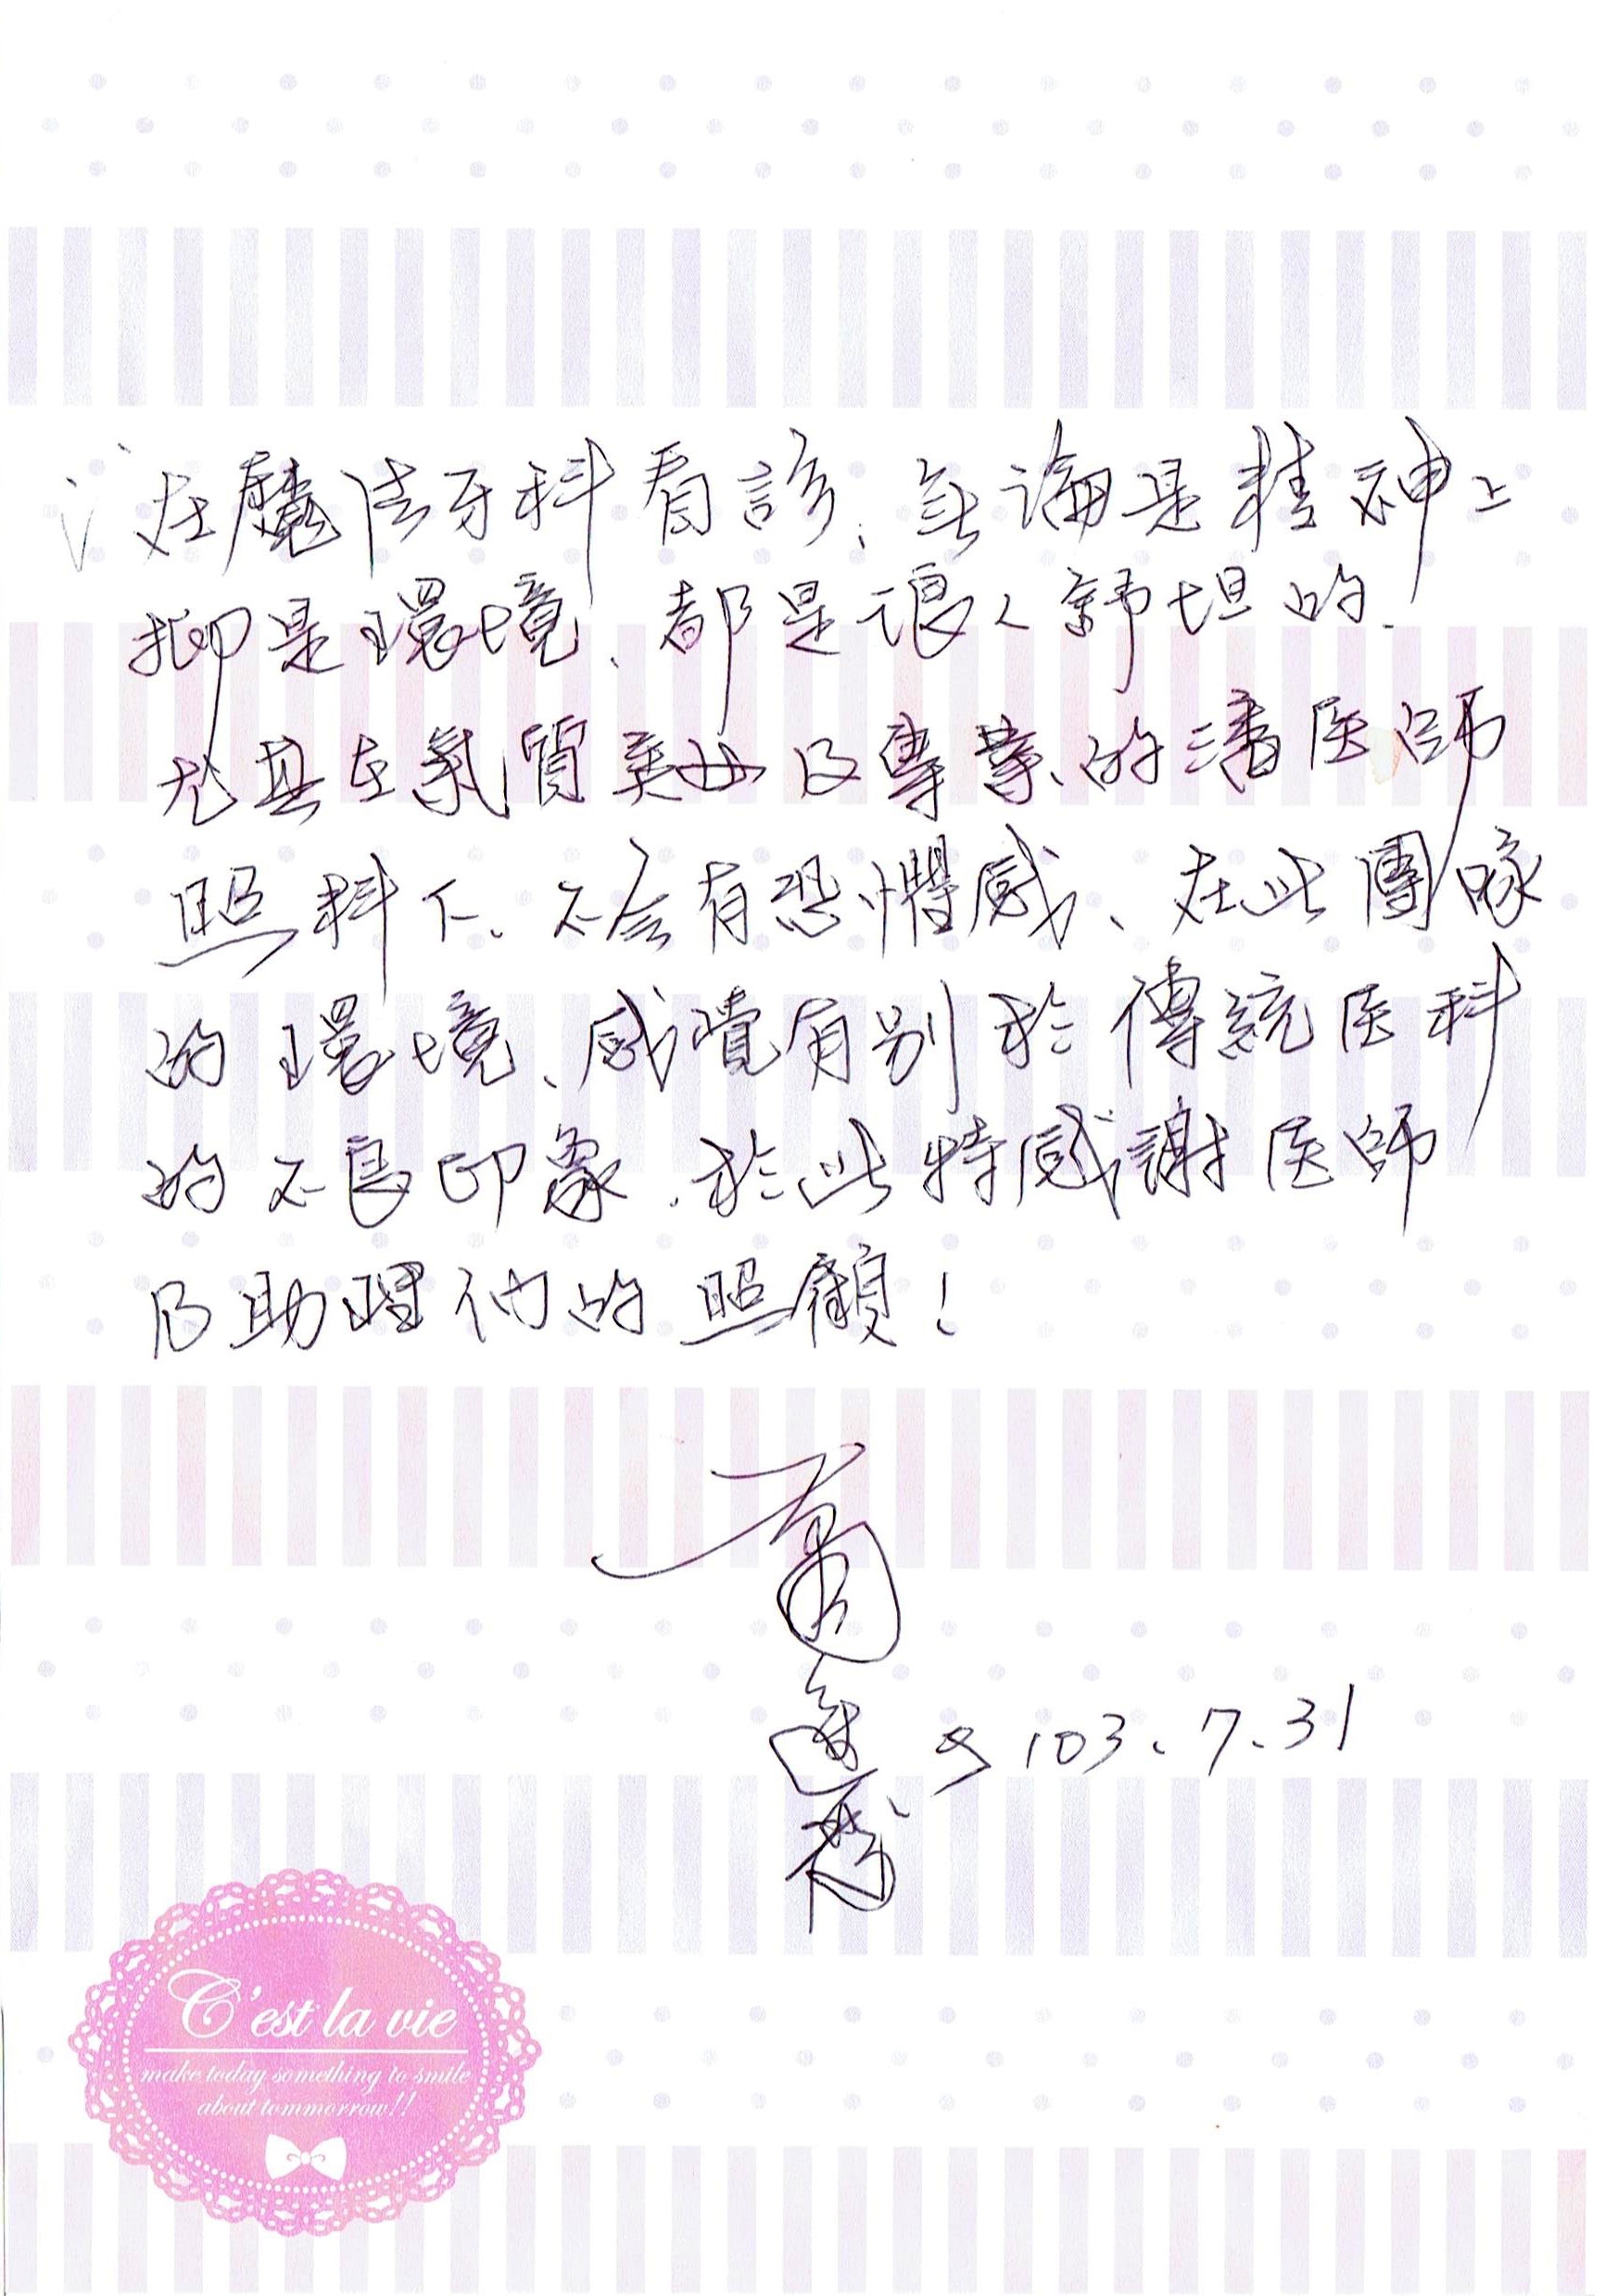 在魔法牙科看診、無論是精神上
抑是環境、都是讓人舒坦的.
尤其在氣質美女及專業的潘医師
照料下、不会有恐懼感、在此團隊
的環境、感覺有别於傳統医科
的不良印象.於此特感謝医師
及助理们的照顧!
103.7.31
C'est la vie
make today something to smile
about tommorrow!!